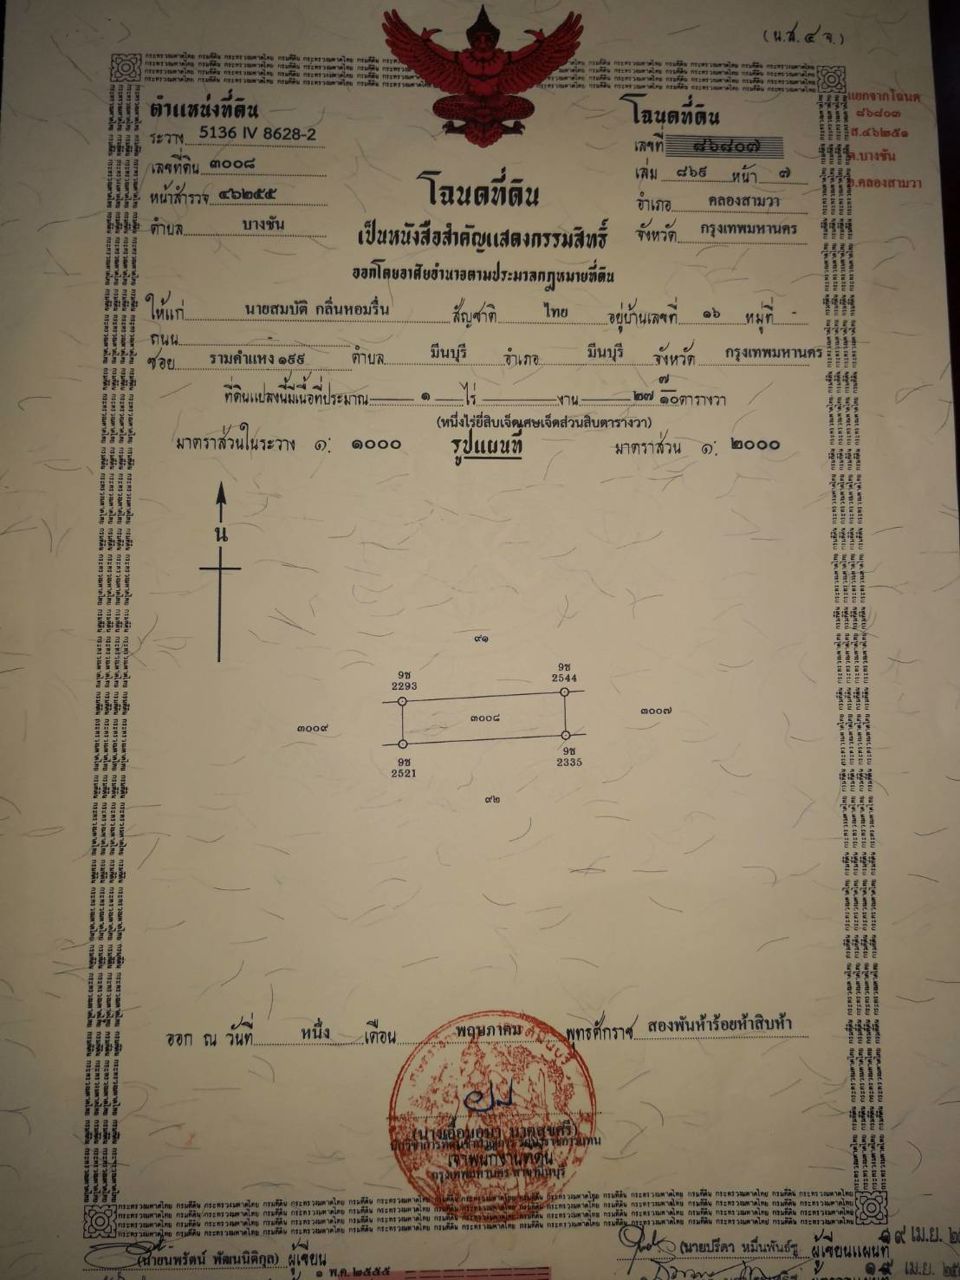 (น.ส.๔ จ.)
ตำแหน่งที่ดิน
ระวาง 5136 IV 8628-2
เลขที่ดิน ๓๐๐๘
หน้าสำรวจ ๔๖๒๕๕
ตำบล บางชัน
โฉนดที่ดิน
เลขที่ ๘๖๘๐๗
เล่ม ๘๖๙ หน้า ๗
อำเภอ คลองสามวา
จังหวัด กรุงเทพมหานคร
แยกจากโฉนด
๘๖๘๐๓
ส.๔๖๒๕๑
ต.บางชัน
อ.คลองสามวา
โฉนดที่ดิน
เป็นหนังสือสำคัญแสดงกรรมสิทธิ์
ออกโดยอาศัยอำนาจตามประมวลกฎหมายที่ดิน
ให้แก่ นายสมบัติ กลิ่นหอมรื่น สัญชาติ ไทย อยู่บ้านเลขที่ ๑๖ หมู่ที่ -
ถนน -
ซอย รามคำแหง ๑๙๙ ตำบล มีนบุรี อำเภอ มีนบุรี จังหวัด กรุงเทพมหานคร
ที่ดินแปลงนี้มีเนื้อที่ประมาณ ๑ ไร่ - งาน ๒๗ ๗/๑๐ ตารางวา
(หนึ่งไร่ยี่สิบเจ็ดเศษเจ็ดส่วนสิบตารางวา)
มาตราส่วนในระวาง ๑: ๑๐๐๐ รูปแผนที่ มาตราส่วน ๑: ๒๐๐๐
น
๙๑
9ช 2293
9ช 2544
๓๐๐๙ ๓๐๐๘ ๓๐๐๗
9ช 2521
9ช 2335
๙๒
ออก ณ วันที่ หนึ่ง เดือน พฤษภาคม พุทธศักราช สองพันห้าร้อยห้าสิบห้า
เจ้าพนักงานที่ดิน
(นายนพรัตน์ พัฒนนิติกุล) ผู้เขียน
๑ พ.ค. ๒๕๕๕
(นายปรีดา หมื่นพันธ์ชู ผู้เขียนแผนที่
๑๙ เม.ย.
๑๙ เม.ย.